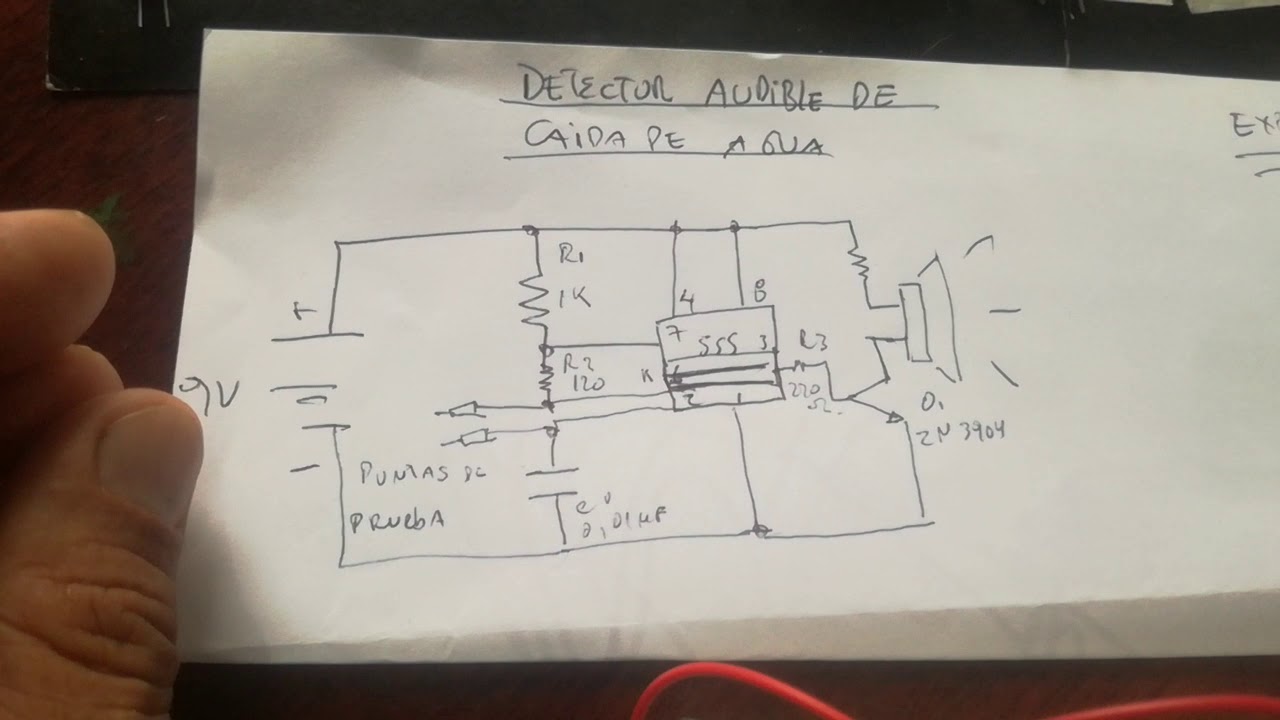 DETECTOR AUDIBLE DE
CAIDA DE AGUA
EX
R1
1K
+
4
8
7
555
3
R3
R2
120
2
1
220
Ω
9V
Q1
2N3904
PUNTAS DE
PRUEBA
-
0,01µF